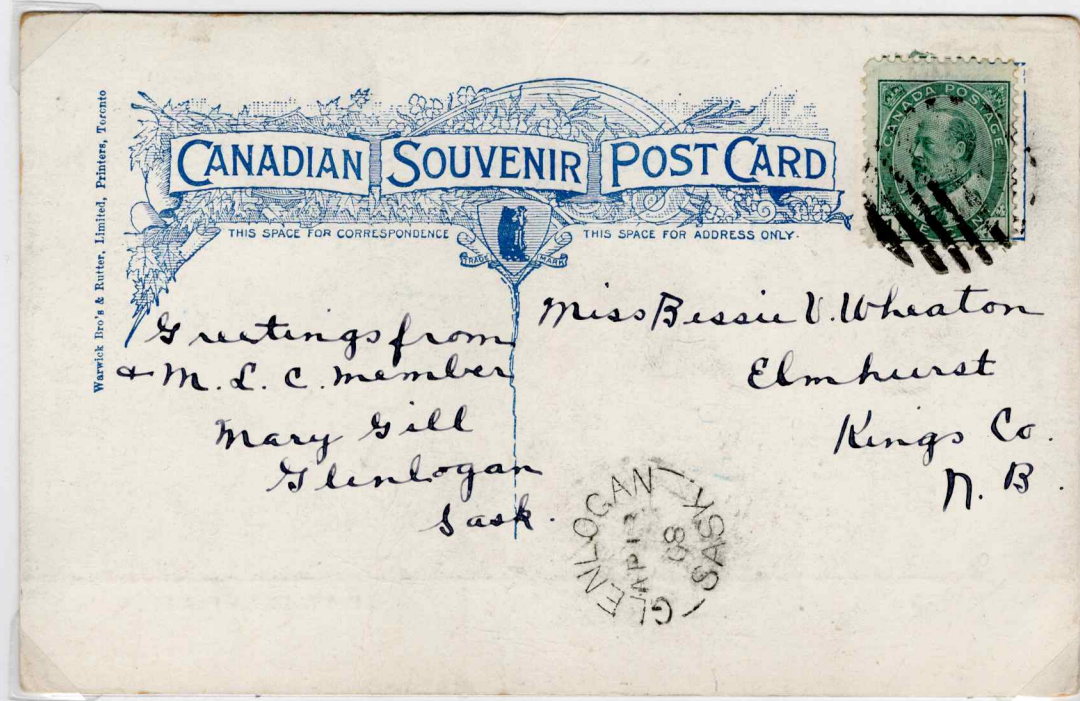 Warwick Bro's & Rutter, Limited, Printers, Toronto
CANADIAN SOUVENIR POST CARD
THIS SPACE FOR CORRESPONDENCE
THIS SPACE FOR ADDRESS ONLY.
TRADE MARK
CANADA POSTAGE
Greetings from
a M. L. C. member
Mary Gill
Glenlogan
Sask.
Miss Bessie V. Wheaton
Elmhurst
Kings Co.
N. B.
GLENLOGAN SASK
AP 12
08